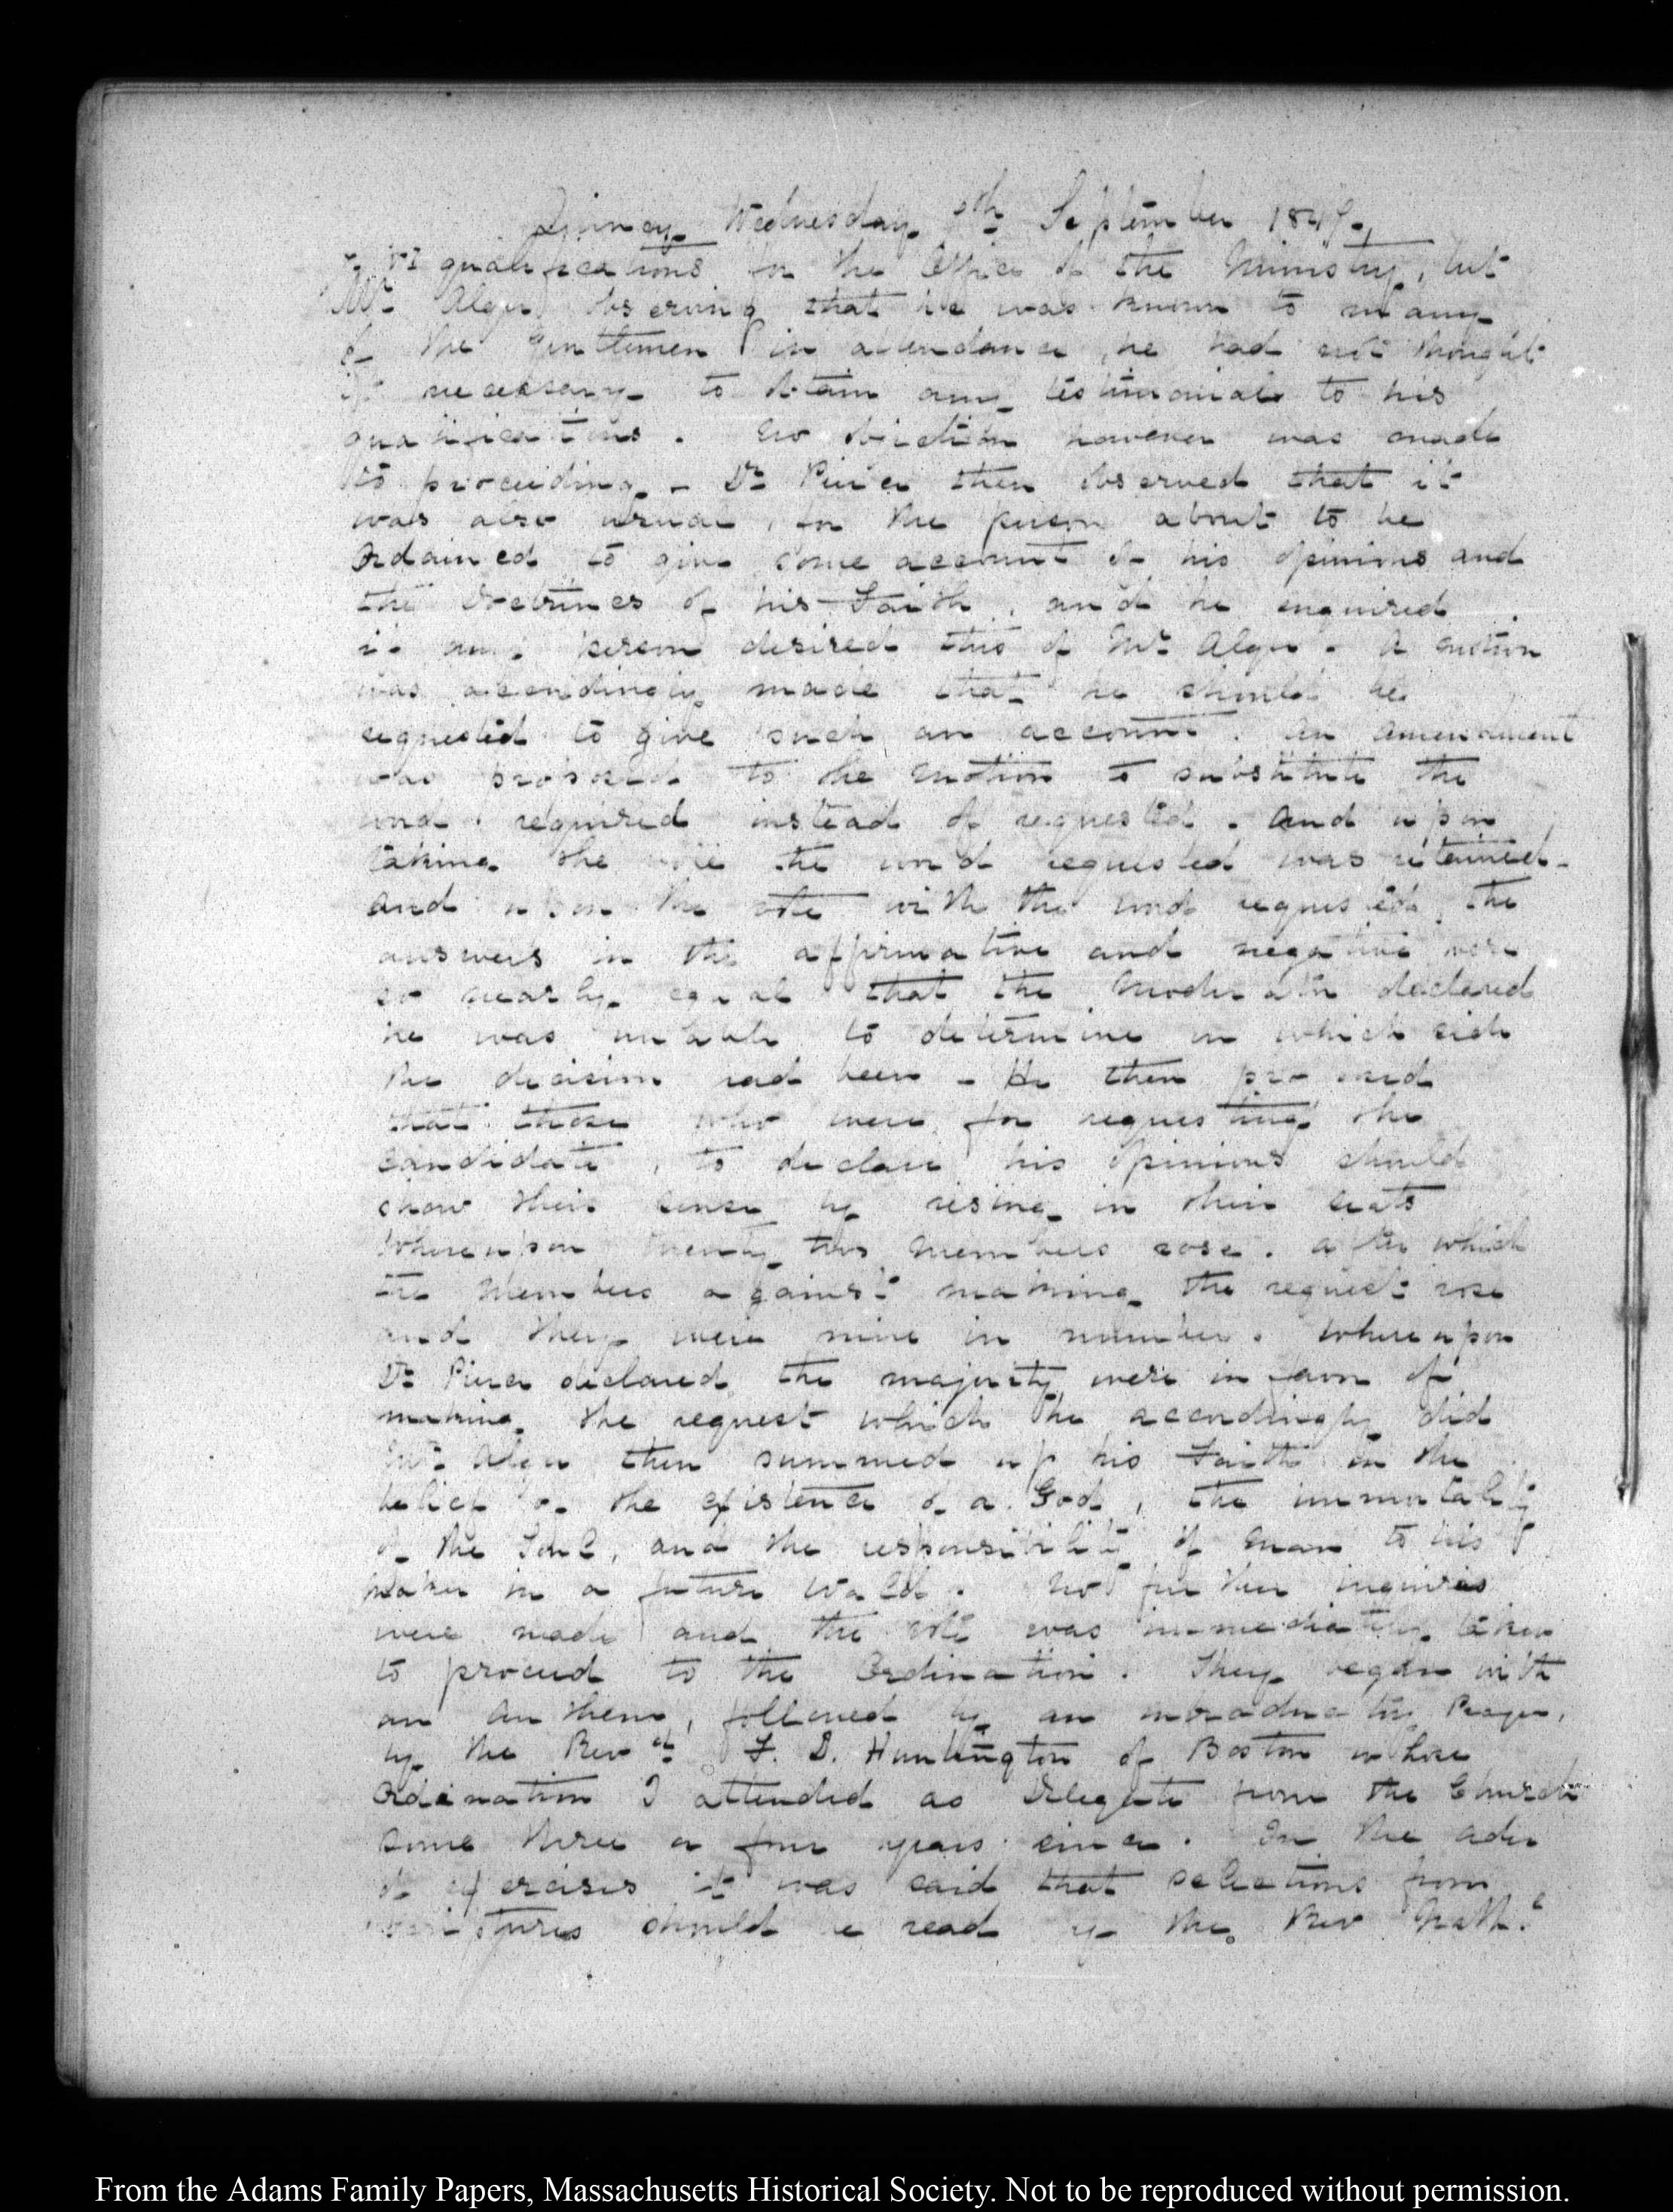 Quincy Wednesday 8th September 1847.
qualifications for the Office of the Ministry, but
Mr. Alger observing that he was known to many
of the Gentlemen in attendance, he had not thought
it necessary to obtain any testimonials to his
qualifications. No objection however was made
to proceeding – Dr. Pierce then observed that it
was also usual, for the person about to be
Ordained to give some account of his opinions and
the Doctrines of his Faith, and he enquired
if any person desired this of Mr. Alger. A motion
was accordingly made that he should be
requested to give such an account. An amendment
was proposed to the motion to substitute the
word required instead of requested. And upon
taking the vote the word requested was retained.
and upon the vote with the word requested, the
answers in the affirmative and negative were
so nearly equal that the Moderator declared
he was unable to determine on which side
the decision had been – He then proposed
that those who were for requesting the
Candidate, to declare his opinions should
show their sense by rising in their seats
Whereupon twenty two Members rose. after which
the Members against making the request rose
and they were nine in number. Whereupon
Dr. Pierce declared the majority were in favor of
making the request which he accordingly did
Mr. Alger then summed up his Faith in the
belief of the existence of a God, the immortality
of the Soul, and the responsibility of man to his
Maker in a future World. No further inquiries
were made and the vote was immediately taken
to proceed to the Ordination. They began with
an Anthem, followed by an introductory Prayer,
by the Revd. F. D. Huntington of Boston whose
Ordination I attended as Delegate from the Church
some three or four years since. In the order
of exercises it was said that selections from
Scriptures should be read by the Rev Nathl.
From the Adams Family Papers, Massachusetts Historical Society. Not to be reproduced without permission.